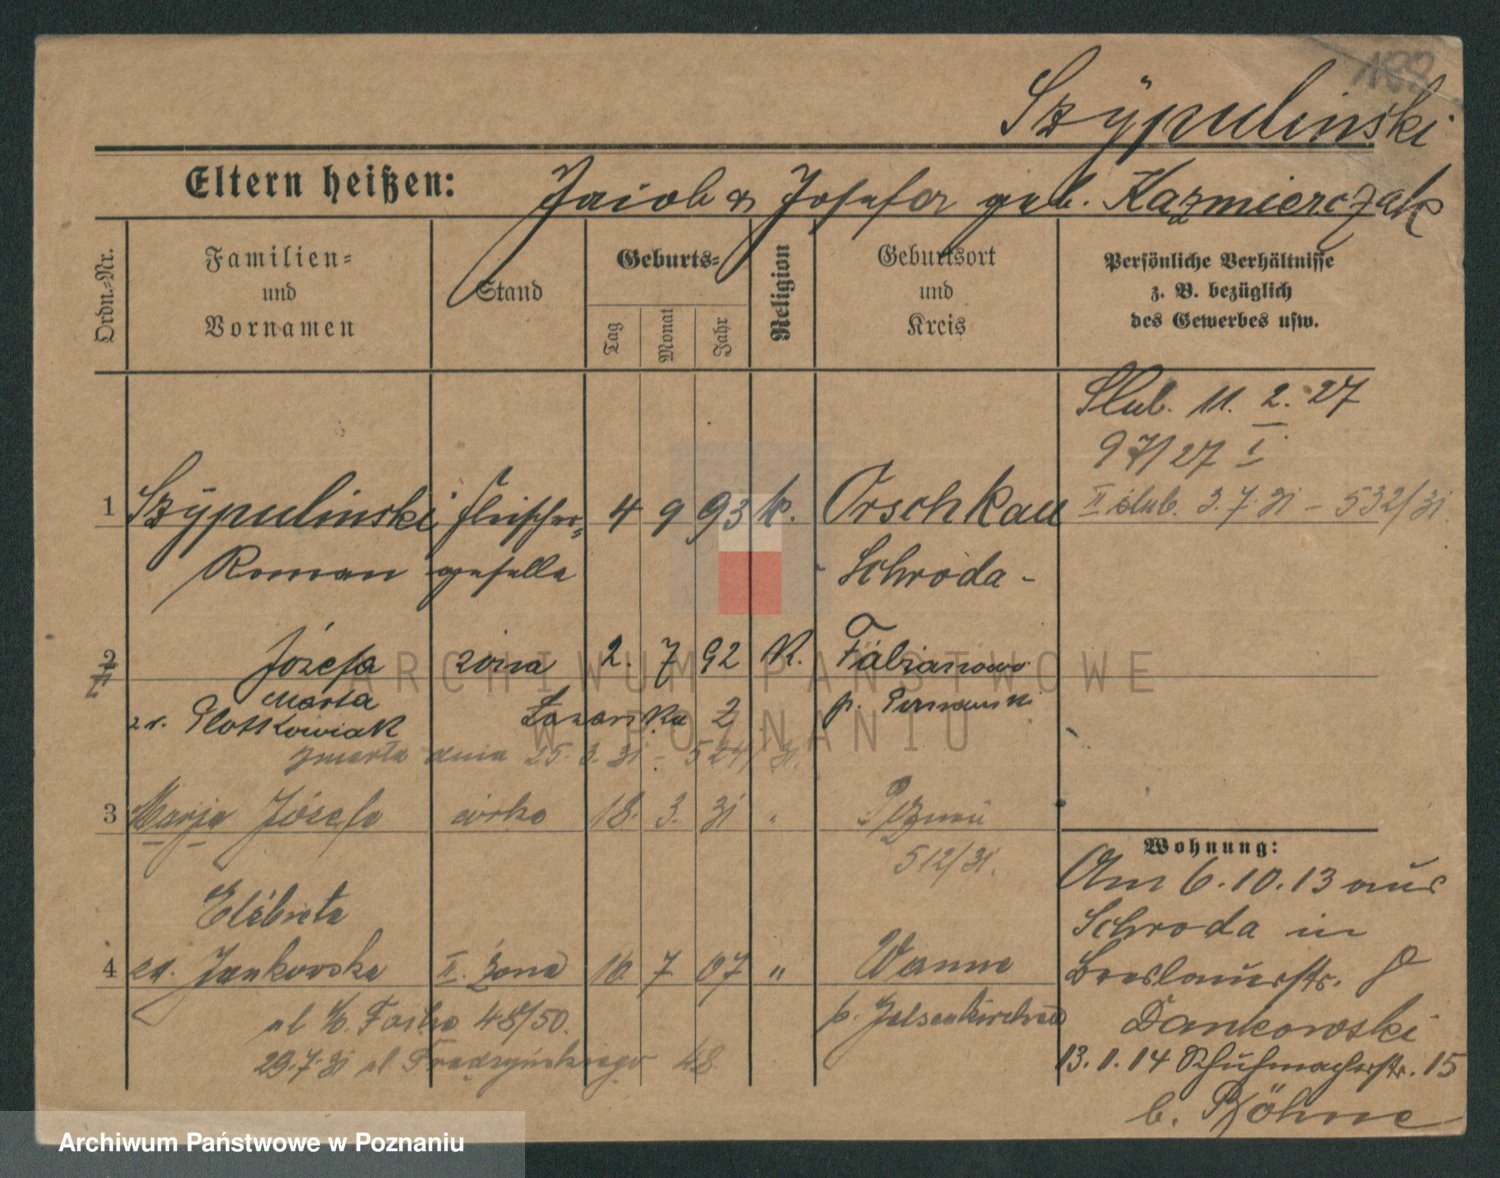 Szÿpulinski
Eltern heißen: Jacob & Josefa geb. Kazmierczak
Ordn.=Nr.
Familien=
und
Vornamen
Stand
Geburts=
Tag
Monat
Jahr
Religion
Geburtsort
und
Kreis
Persönliche Verhältnisse
z. B. bezüglich
des Gewerbes usw.
Slub. 11. 2. 27
97/27 I
II slub. 3.7.31 – 532/31.
1 Szÿpulinski Fleischer= 4 9 93 k. Orschkau
Roman geselle Schroda -
2 Józefa żona 2. 7 92 K. Fabianowo
Marta
z d. Plotkowiak 2 p.
zmarła dnia 25. 3. 31 – 524/31.
3 Marja Józefa córka 18. 3. 31 " Poznań
512/31.
Elżbieta
4 zd. Jankowska II. żona 10 7 07 " Wanne
p. Gelsenkirchen
ul 48/50.
29.7.31 ul 48
Wohnung:
Am 6.10.13 aus
Schroda in
Breslauerstr. 8
Dankowski
13.1.14 Schuhmacherstr. 15
b. Böhne
ARCHIWUM PAŃSTWOWE
W POZNANIU
Archiwum Państwowe w Poznaniu